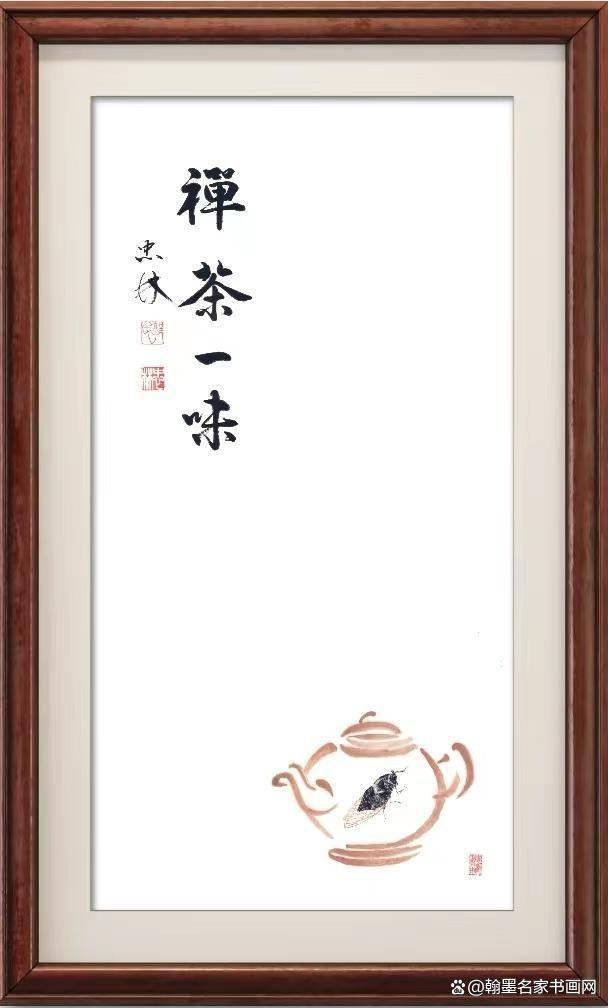 禪茶一味
忠林
@翰墨名家书画网